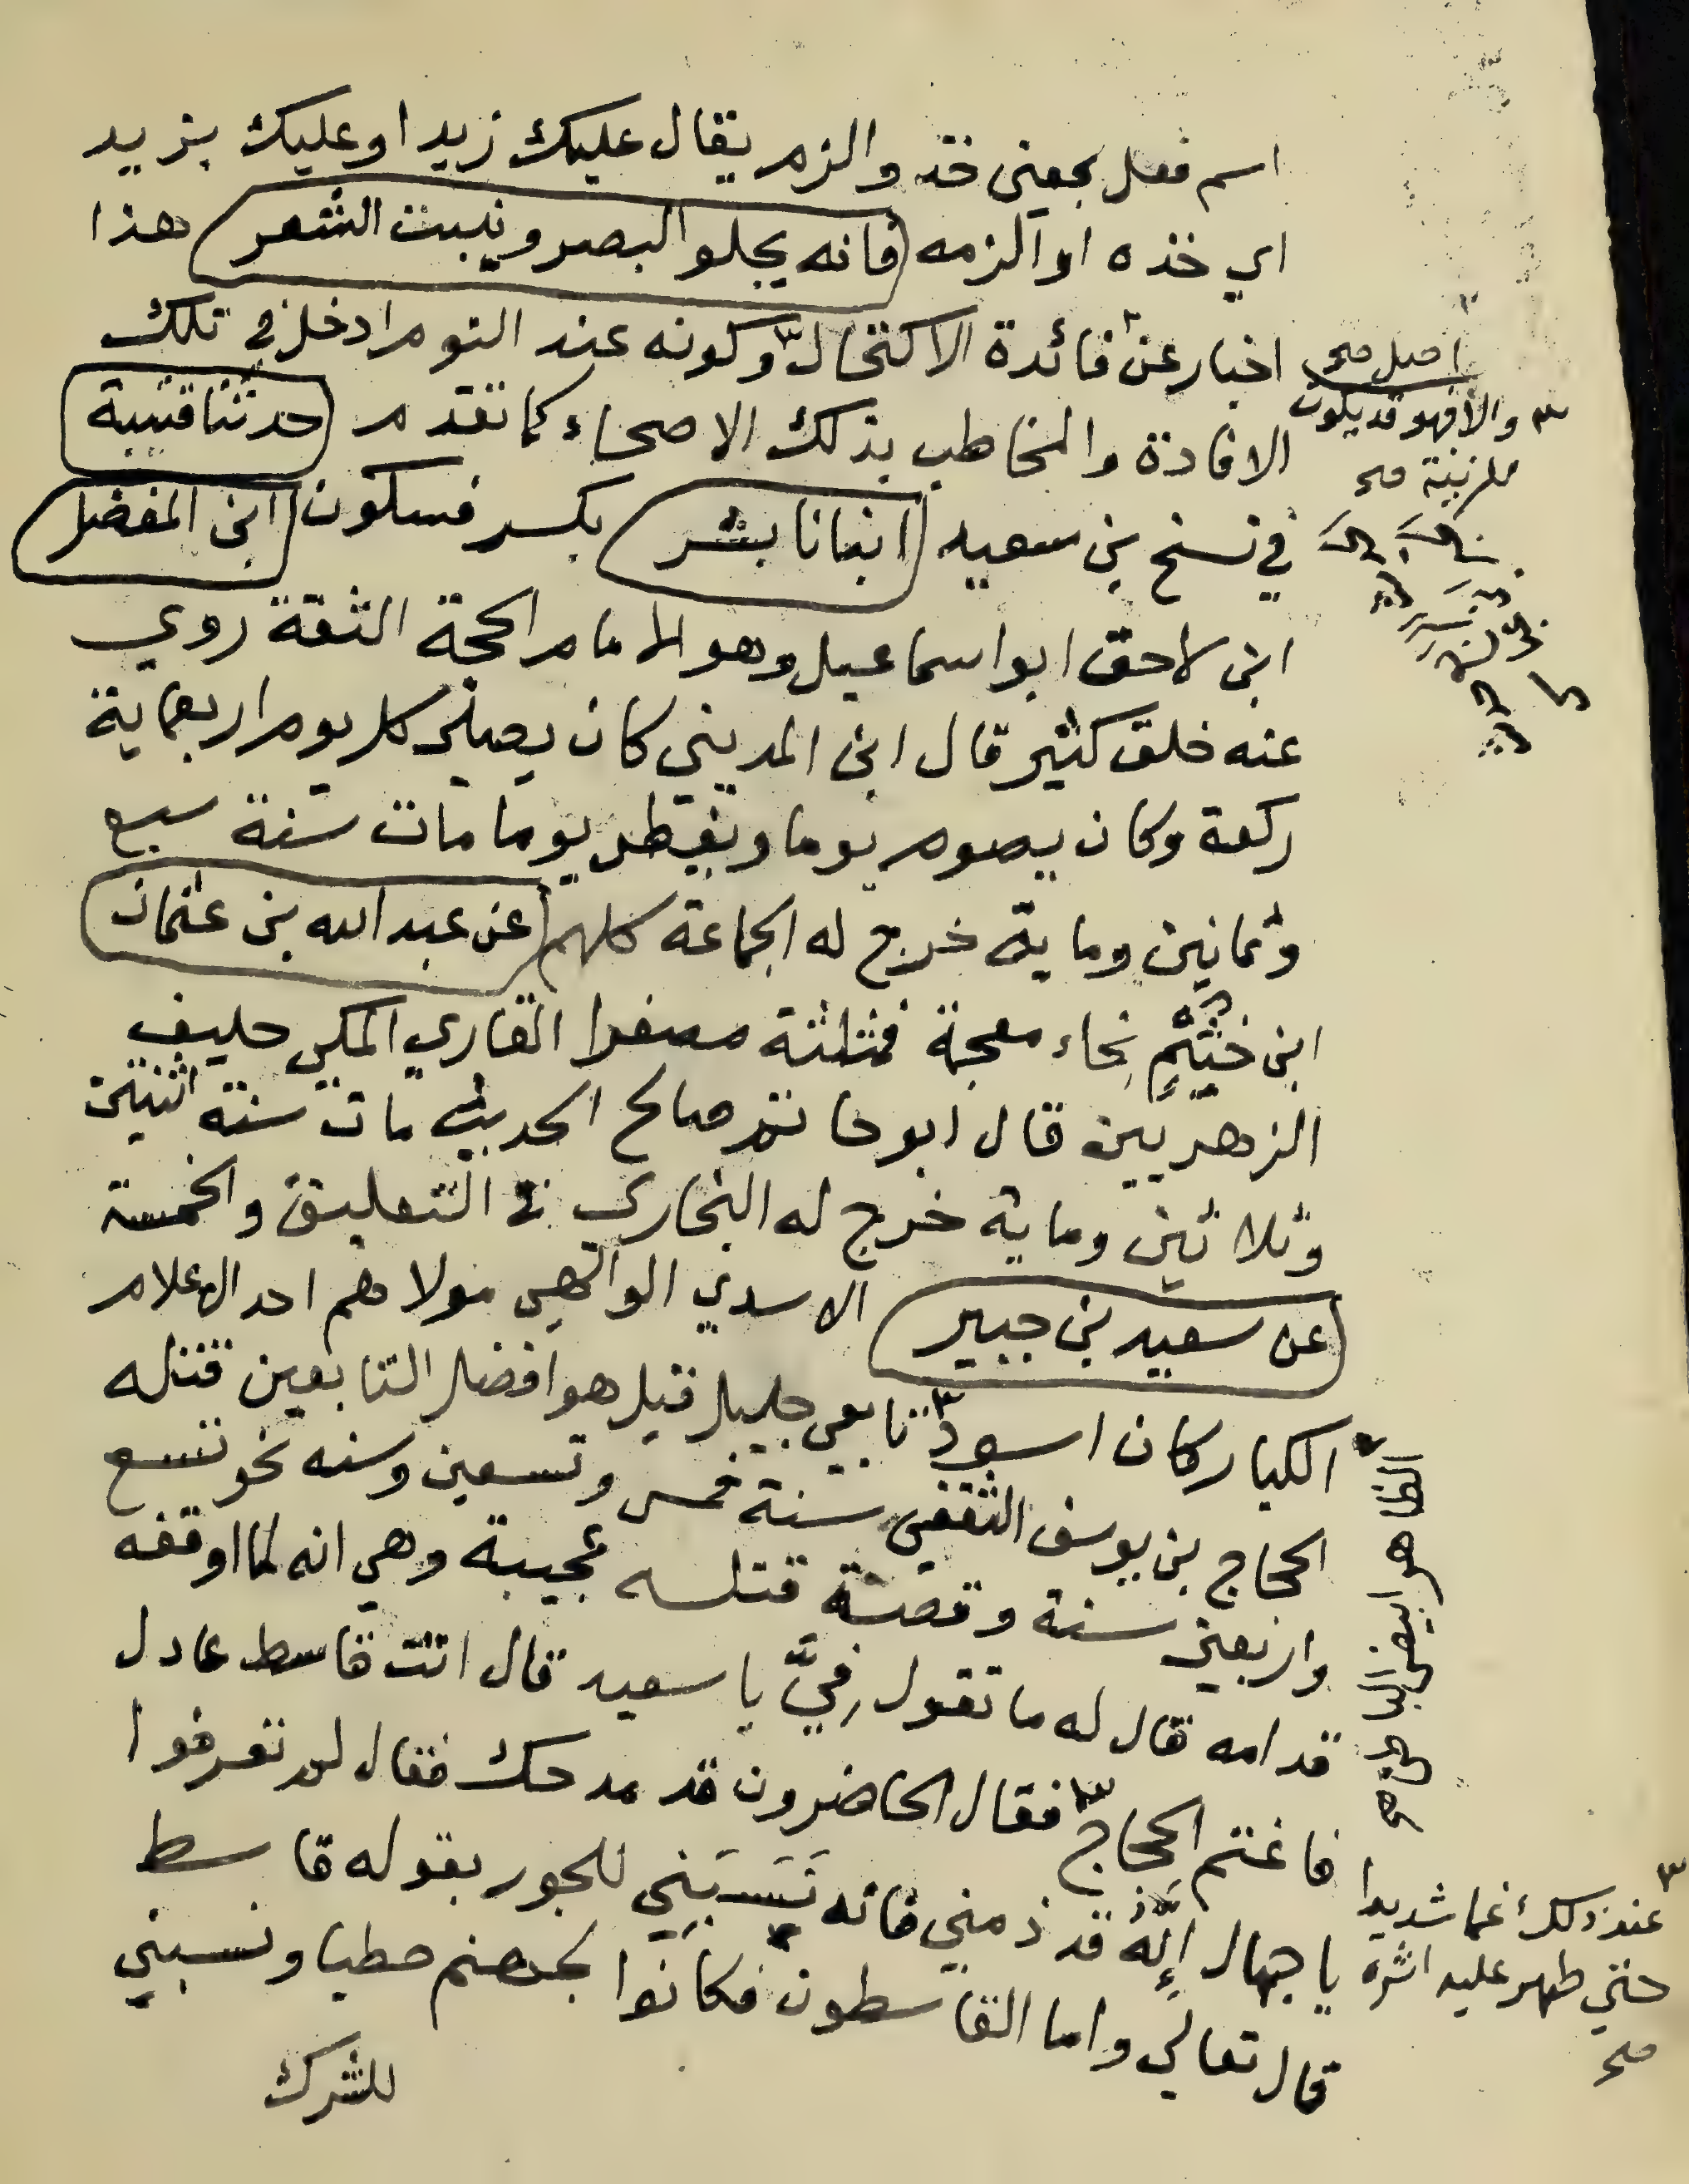 اسم فعل بمعنى خذ والزم يقال عليك زيدا وعليك بزيد
اي خذه او الزمه فانه يجلو البصر وينبت الشعر هذا
اخبار عن فائدة الاكتحال وكونه عند النوم ادخل في تلك
الافادة والمخاطب بذلك الاصحاء كما تقدم حدثنا قتيبة
في نسخ بن سعيد انبانا بشر بكسر فسكون ابن المفضل
ابن لاحق ابو اسماعيل وهو الامام الحجة الثقة روي
عنه خلق كثير قال ابن المديني كان يصلي كل يوم اربعماية
ركعة وكان يصوم يوما ويفطر يوما مات سنة سبع
وثمانين وماية خرج له الجماعة كلهم عن عبد الله بن عثمان
ابن خثيم بخاء معجمة فمثلثة مصغرا القاري المكي حليف
الزهريين قال ابو حاتم صالح الحديث مات سنة اثنين
وثلاثين وماية خرج له البخاري في التعليق والخمسة
عن سعيد بن جبير الاسدي الوالهي مولاهم احد الاعلام
الكبار كان اسود تابعي جليل قيل هو افضل التابعين قتله
الحجاج بن يوسف الثقفي سنة خمس وتسعين وسنه نحو تسع
واربعين سنة وقصة قتله عجيبة وهي انه لما اوقفه
قدامه قال له ما تقول فيَّ يا سعيد قال انت قاسط عادل
فاغتم الحجاج فقال الحاضرون قد مدحك فقال لم تعرفوا
يا جهال إنَّهُ قد ذمني فانه نَسَبَنِي للجور بقوله قاسط
قال تعالي واما القاسطون فكانوا لجهنم حطبا ونسبني
للشرك
اصل صح
والا فهو قد يكون
للزينة صح
الظاهر ابيض
عند ذلك غما شديدا
حتي ظهر عليه اثره
صح